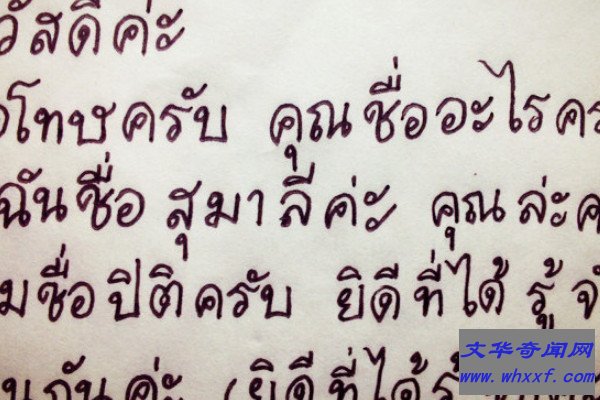 วัสดีค่ะ
โทษครับ คุณชื่ออะไรคร
ฉันชื่อ สุมาลีค่ะ คุณล่ะค
มชื่อปิติครับ ยิดีที่ได้ รู้จั
นกันค่ะ (ยิดีที่ได้รู้
文华奇闻网
www.whxxf.com